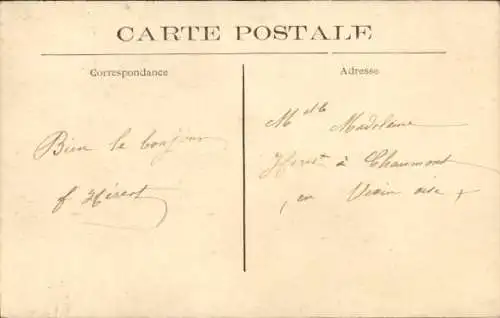 CARTE POSTALE
Correspondance
Bien le bonjour
f Hérest
Adresse
Mlle Madeleine
à Chaumont
en Vexin oise